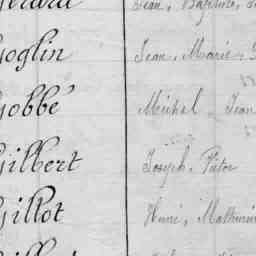 Jean, Baptiste,
Goglin Jean, Marie,
Gobbé Michel Jean
Gilbert Joseph, Victor
Gillot Henri, Mathurin